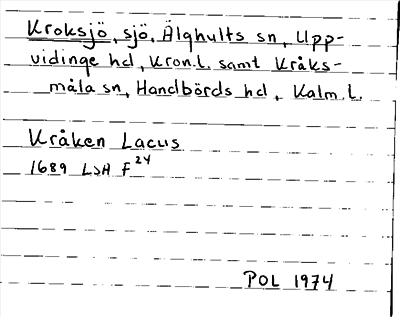 Kroksjö, sjö, Älghults sn, Upp-
vidinge hd, Kron.l. samt Kråks-
måla sn, Handbörds hd, Kalm.l.
Kråken Lacus
1689 LSA F24
POL 1974